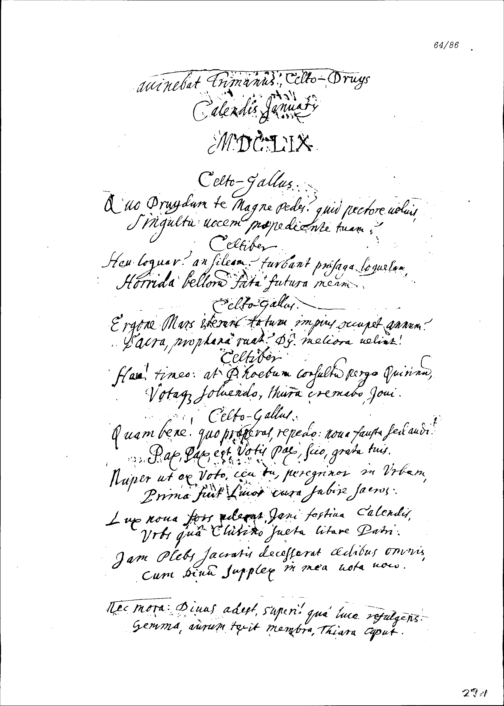 64/86
avinebat Trimanus, Celto-Druys
Calendis January
MDCLIX
Celto-Gallus.
Quo Druydum te Magne pedes? quid pectore voluis,
Singultu vocem praepediente tuam?
Celtiber
Heu loquar? an sileam? turbant praesaga loquelam,
Horrida bellorum fata futura meam.
Celto-gallus.
Ergone Mars iterum totum impius occupet annum?
Sacra, prophana ruat? Dij meliora velint!
Celtiber
Hau! timeo: at Phoebum consultum pergo Quirinum,
Votaq; solvendo, thura cremabo Jovi.
Celto-Gallus.
Quam bene! quo properas, repedo: nova fausta sed audi!
Pax, Pax est Votis pax, scio, grata tuis.
Nuper ut ex Voto, ceu tu, peregrinor in Urbem,
Prima fuit cura subire sacros.
Lux nova Jani festiva Calendis,
Urbs quâ sueta litare Patri.
Jam Plebs sacratis decesserat aedibus omnis,
Cum Divûm supplex in mea vota voco.
Nec mora: Divus adest, superi! quâ luce refulgens.
Gemma, aurum texit membra, Thiara caput.
291